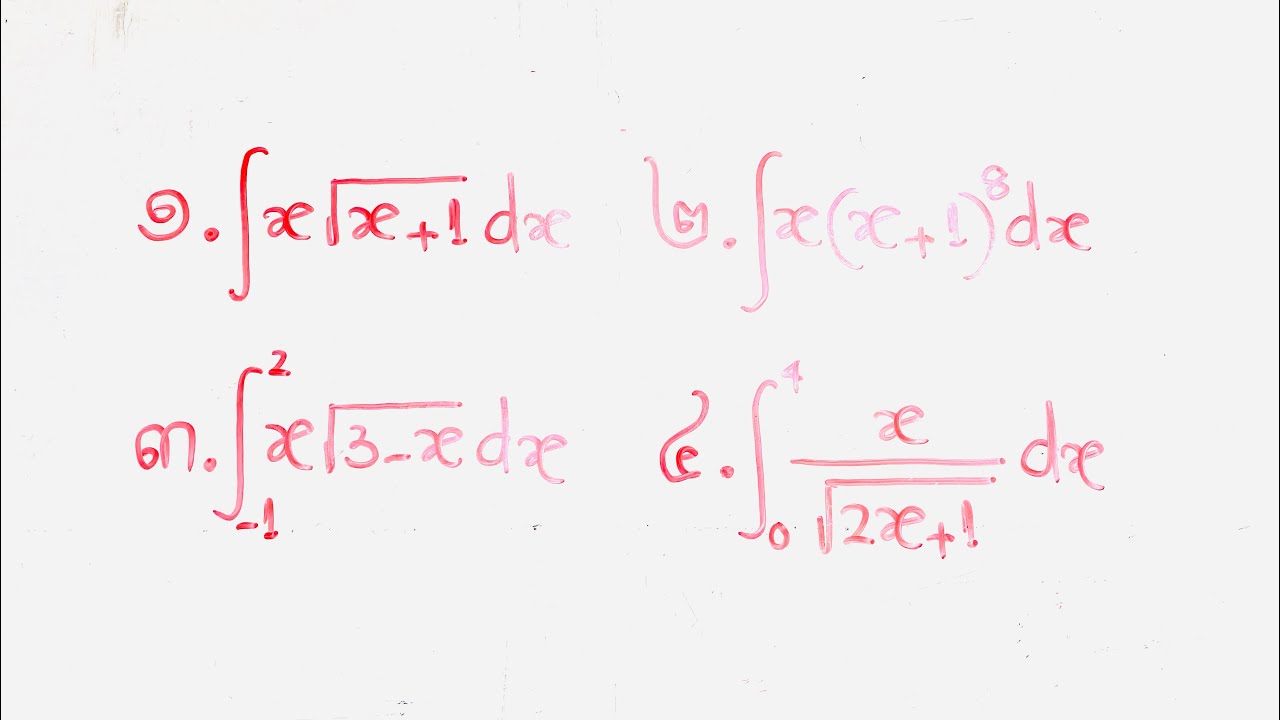 ๑. ∫x√(x+1) dx ๒. ∫x(x+1)⁸dx
๓. ∫₋₁² x√(3-x) dx ๔. ∫₀⁴ x/√(2x+1) dx